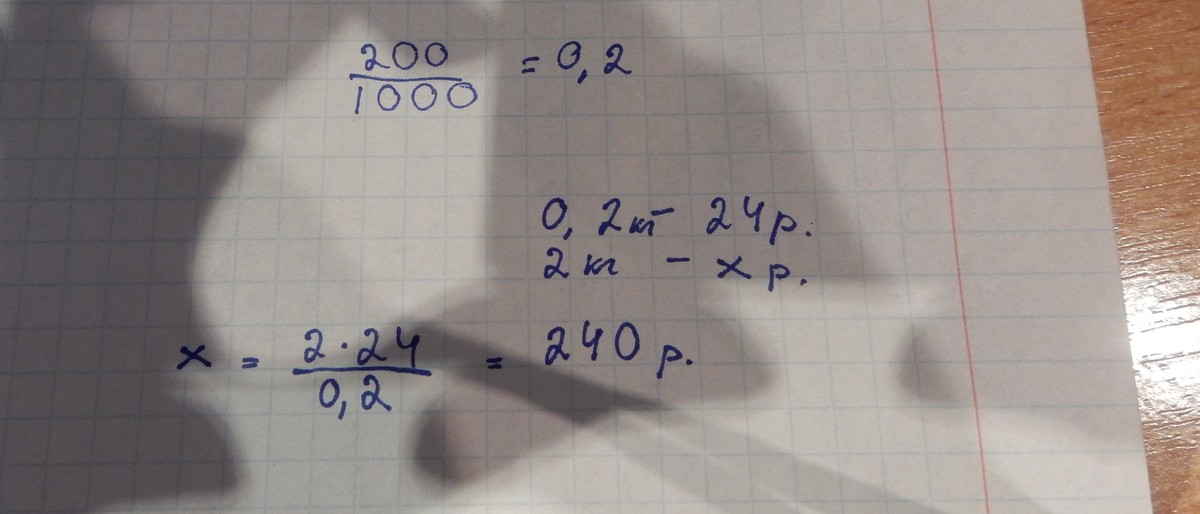 200/1000 = 0,2
0,2кг - 24р.
2кг - x р.
x = 2·24/0,2 = 240 р.